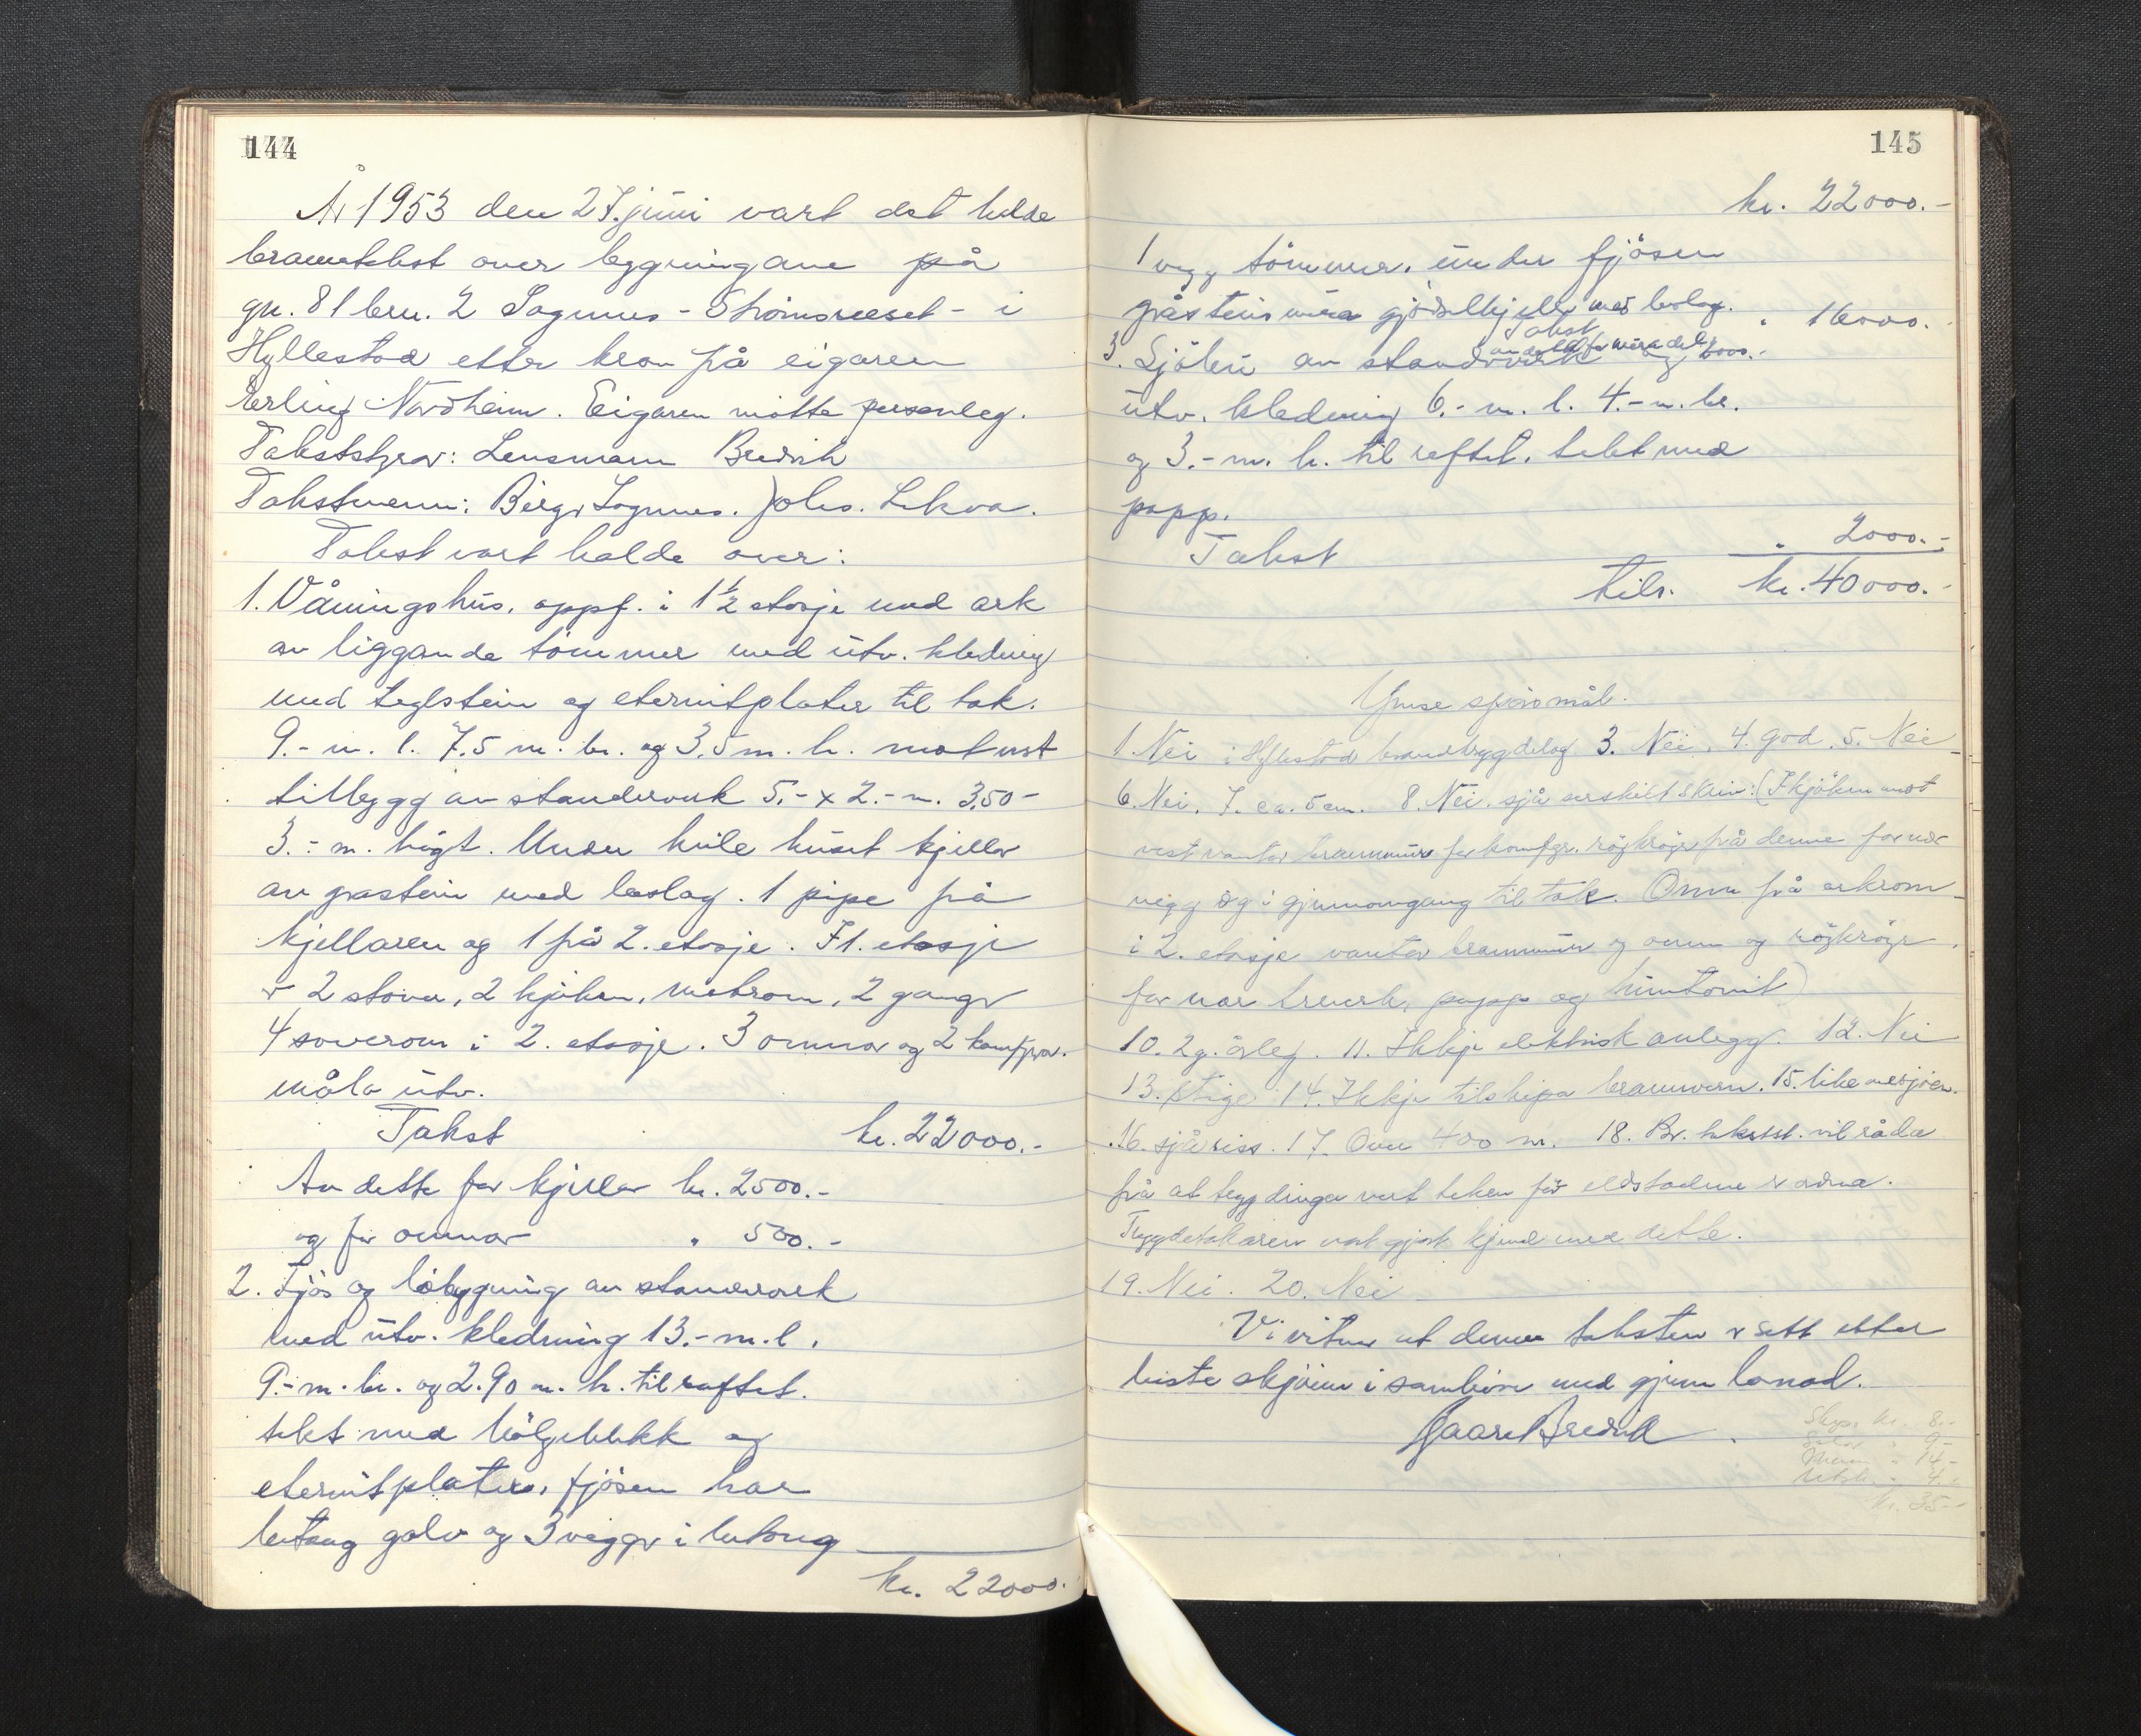 144
År 1953 den 27. juni vart det halde
branntakst over bygningane på
gn. 81 bru. 2 Sognnes - Strømsneset - i
Hyllestad etter krav på eigaren
Erling Nordheim. Eigaren møtte personleg.
Takststyrar: Lensmann Bredvik
Takstmenn: Birger Sognnes. Johs. Lekva.
Takst vart halde over:
1. Våningshus, oppf. i 1½ etasje med ark
av liggande tömmer med utv. kledning
med teglstein og eternitplater til tak.
9.- m. l. 7,5 m. br. og 3,5 m. h. mot vest
tillbygg av standverk 5.- x 2.- m. 3,50 -
3.- m. högt. Under heile huset kjellar
av gråstein med beslag. 1 pipe frå
kjellaren og 1 frå 2. etasje. I 1. etasje
er 2 stover, 2 kjøken, matrom, 2 gangar
4 soverom i 2. etasje. 3 omnar og 2 komfyrar.
måla utv.
Takst kr. 22000.-
Av dette for kjellar kr. 2500.-
og for omnar " 500.-
2. Fjös og löbygning av standverk
med utv. kledning 13.- m. l.
9.- m. br. og 2.90 m. h. til raftet.
tekt med bölgeblikk og
eternitplater, fjösen har
betong golv og 3 veggar i betong
kr. 22000.
145
kr. 22000.-
1 vegg tömmer. under fjösen
gråsteins mura gjödselkjellar med beslag.
Takst " 16000.-
av dette for mura del kr. 2000.-
3. Sjöbu av standverk
utv. kledning 6.- m. l. 4.- m. br.
og 3.- m. h. til raftet. tekt med
papp.
Takst " 2000.-
tils. kr. 40000.-
Ymse spörsmål.
1. Nei i Hyllestad brandtrygdelag 3. Nei. 4. god. 5. Nei
6. Nei. 7. ca. 5 cm. 8. Nei. sjå serskilt skriv: (I kjöken mot
vest vantar brannmur for komfyr. röykröyr frå denne for nær
vegg og i gjennomgang til tak. Omn på arkrom
i 2. etasje vantar brannmur og omn og röykröyr
for nær treverk, papp og huntonit)
10. 2 g. årleg. 11. Ikkje elektrisk anlegg. 12. Nei
13. Stige 14. Ikkje tilskipa brannvern. 15. like ved sjöen.
16. sjå riss. 17. Over 400 m. 18. Br. takstst. vil råda
frå at trygdinga vert teken för eldstadene er ordna.
Trygdetakaren vart gjort kjend med dette.
19. Nei. 20. Nei
Vi vitnar at denne taksten er sett etter
beste skjönn i samhöve med gjeven lovnad.
Kaare Bredvik
Skyss kr. 8.-
" 9.-
Menn " 14-
Utskr. " 4.-
kr. 35.-